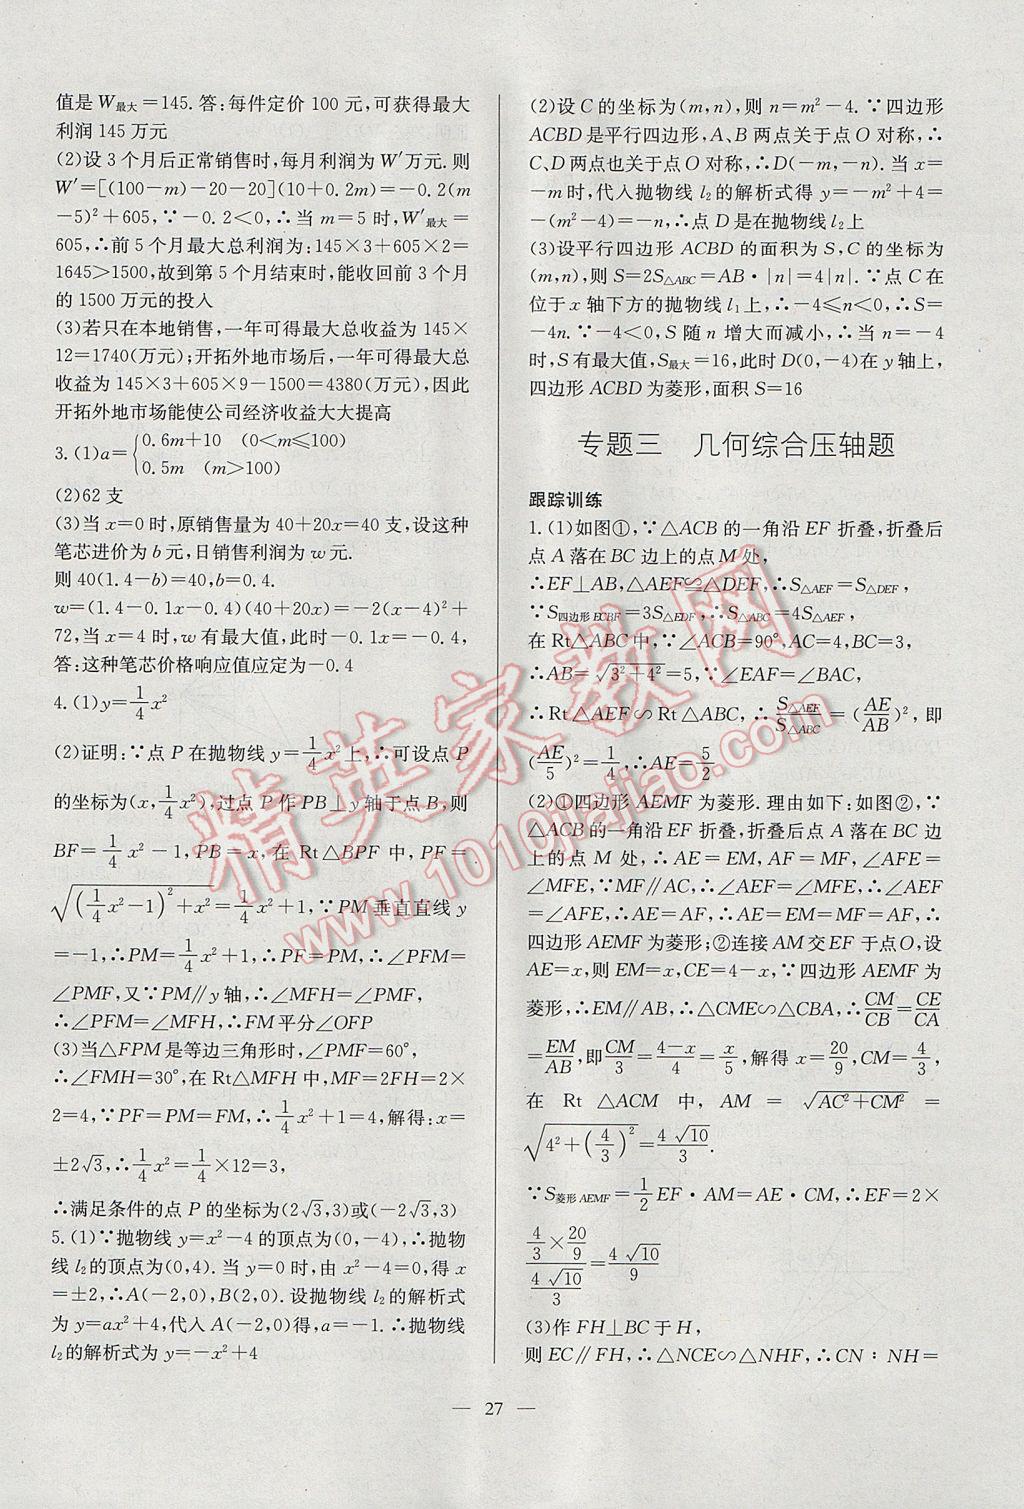 值是W最大=145.答:每件定价100元,可获得最大
利润145万元
(2)设3个月后正常销售时,每月利润为W′万元.则
W′=[(100-m)-20-20](10+0.2m)=-0.2(m
-5)²+605,∵-0.2<0,∴当m=5时,W′最大=
605,∴前5个月最大总利润为:145×3+605×2=
1645>1500,故到第5个月结束时,能收回前3个月
的1500万元的投入
(3)若只在本地销售,一年可得最大总收益为145×
12=1740(万元);开拓外地市场后,一年可得最大总
收益为145×3+605×9-1500=4380(万元),因此
开拓外地市场能使公司经济收益大大提高
3.(1)a={0.6m+10 (0<m≤100)
0.5m (m>100)
(2)62支
(3)当x=0时,原销售量为40+20x=40支,设这种
笔芯进价为b元,日销售利润为w元.
则40(1.4-b)=40,b=0.4.
w=(1.4-0.1x-0.4)(40+20x)=-2(x-4)²+
72,当x=4时,w有最大值,此时-0.1x=-0.4,
答:这种笔芯价格响应值应定为-0.4
4.(1)y=1/4x²
(2)证明:∵点P在抛物线y=1/4x²上,∴可设点P
的坐标为(x,1/4x²),过点P作PB⊥y轴于点B,则
BF=1/4x²-1,PB=x,在Rt△BPF中,PF=
√((1/4x²-1)²+x²)=1/4x²+1,∵PM垂直直线y
=-1,∴PM=1/4x²+1,∴PF=PM,∴∠PFM=
∠PMF,又∵PM∥y轴,∴∠MFH=∠PMF,
∴∠PFM=∠MFH,∴FM平分∠OFP
(3)当△FPM是等边三角形时,∠PMF=60°,
∴∠FMH=30°,在Rt△MFH中,MF=2FH=2×
2=4,∵PF=PM=FM,∴1/4x²+1=4,解得:x=
±2√3,∴1/4x²=1/4×12=3,
∴满足条件的点P的坐标为(2√3,3)或(-2√3,3)
5.(1)∵抛物线y=x²-4的顶点为(0,-4),∴抛物
线l₂的顶点为(0,4).当y=0时,由x²-4=0,得x
=±2,∴A(-2,0),B(2,0).设抛物线l₂的解析式
为y=ax²+4,代入A(-2,0)得,a=-1.∴抛物线
l₂的解析式为y=-x²+4
(2)设C的坐标为(m,n),则n=m²-4.∵四边形
ACBD是平行四边形,A、B两点关于点O对称,∴
C、D两点也关于点O对称,∴D(-m,-n).当x=
-m时,代入抛物线l₂的解析式得y=-m²+4=
-(m²-4)=-n,∴点D是在抛物线l₂上
(3)设平行四边形ACBD的面积为S,C的坐标为
(m,n),则S=2S△ABC=AB·|n|=4|n|.∵点C在
位于x轴下方的抛物线l₁上,∴-4≤n<0,∴S=
-4n.∵-4<0,S随n增大而减小,∴当n=-4
时,S有最大值,S最大=16,此时D(0,-4)在y轴上,
四边形ACBD为菱形,面积S=16
专题三 几何综合压轴题
跟踪训练
1.(1)如图①,∵△ACB的一角沿EF折叠,折叠后
点A落在BC边上的点M处,
∴EF⊥AB,△AEF≌△DEF,∴S△AEF=S△DEF,
∵S四边形ECBF=3S△EDF,∴S△ABC=4S△AEF,
在Rt△ABC中,∵∠ACB=90°,AC=4,BC=3,
∴AB=√(3²+4²)=5,∵∠EAF=∠BAC,
∴Rt△AEF∽Rt△ABC,∴S△AEF/S△ABC=(AE/AB)²,即
(AE/5)²=1/4,∴AE=5/2
(2)①四边形AEMF为菱形.理由如下:如图②,∵
△ACB的一角沿EF折叠,折叠后点A落在BC边
上的点M处,∴AE=EM,AF=MF,∠AFE=
∠MFE,∵MF∥AC,∴∠AEF=∠MFE,∴∠AEF
=∠AFE,∴AE=AF,∴AE=EM=MF=AF,∴
四边形AEMF为菱形;②连接AM交EF于点O,设
AE=x,则EM=x,CE=4-x,∵四边形AEMF为
菱形,∴EM∥AB,∴△CME∽△CBA,∴CM/CB=CE/CA
=EM/AB,即CM/3=(4-x)/4=x/5,解得x=20/9,CM=4/3,
在Rt△ACM中,AM=√(AC²+CM²)=
√(4²+(4/3)²)=4√10/3.
∵S菱形AEMF=1/2EF·AM=AE·CM,∴EF=2×
(4/3×20/9)/(4√10/3)=4√10/9
(3)作FH⊥BC于H,
则EC∥FH,∴△NCE∽△NHF,∴CN∶NH=
— 27 —
精英家教网
www.1010jiajiao.com